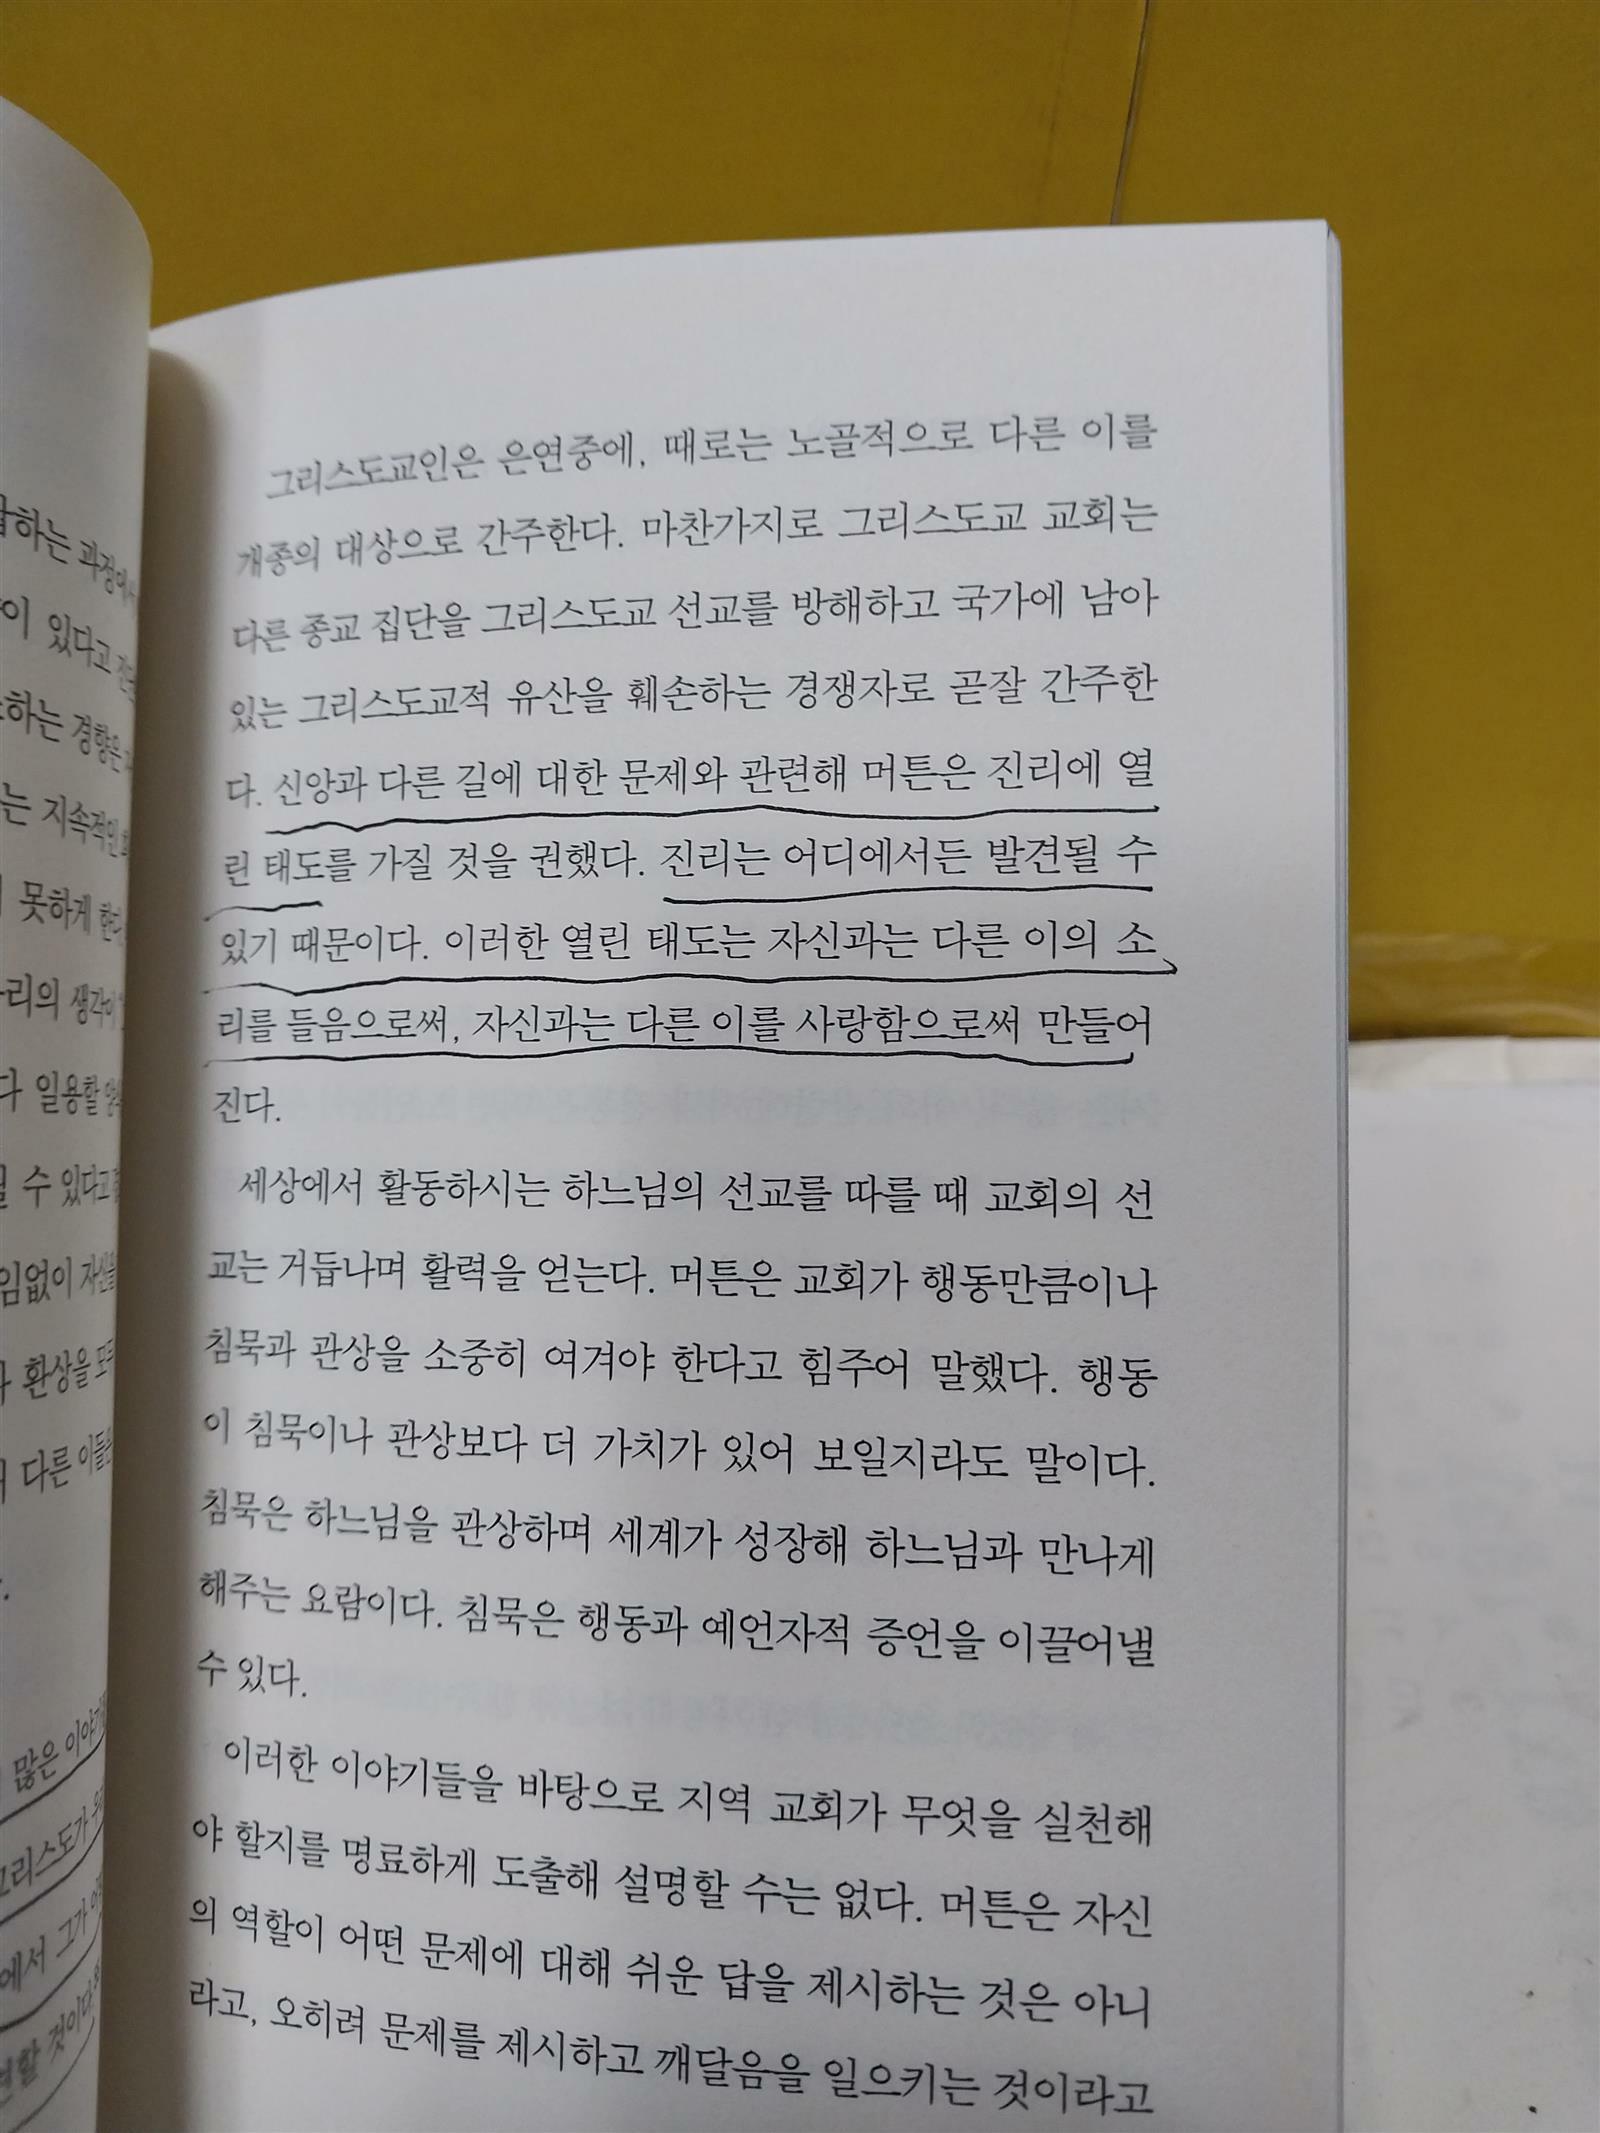 답하는 과정에서
이 있다고
하는 경향은
는 지속적인
못하게 한다
우리의 생각이
다 일용할
될 수 있다고
끊임없이 자신을
환상을 모두
다른 이들은
많은 이야기
그리스도가
에서 그가
할 것이다.
그리스도교인은 은연중에, 때로는 노골적으로 다른 이를
개종의 대상으로 간주한다. 마찬가지로 그리스도교 교회는
다른 종교 집단을 그리스도교 선교를 방해하고 국가에 남아
있는 그리스도교적 유산을 훼손하는 경쟁자로 곧잘 간주한
다. 신앙과 다른 길에 대한 문제와 관련해 머튼은 진리에 열
린 태도를 가질 것을 권했다. 진리는 어디에서든 발견될 수
있기 때문이다. 이러한 열린 태도는 자신과는 다른 이의 소
리를 들음으로써, 자신과는 다른 이를 사랑함으로써 만들어
진다.
세상에서 활동하시는 하느님의 선교를 따를 때 교회의 선
교는 거듭나며 활력을 얻는다. 머튼은 교회가 행동만큼이나
침묵과 관상을 소중히 여겨야 한다고 힘주어 말했다. 행동
이 침묵이나 관상보다 더 가치가 있어 보일지라도 말이다.
침묵은 하느님을 관상하며 세계가 성장해 하느님과 만나게
해주는 요람이다. 침묵은 행동과 예언자적 증언을 이끌어낼
수 있다.
이러한 이야기들을 바탕으로 지역 교회가 무엇을 실천해
야 할지를 명료하게 도출해 설명할 수는 없다. 머튼은 자신
의 역할이 어떤 문제에 대해 쉬운 답을 제시하는 것은 아니
라고, 오히려 문제를 제시하고 깨달음을 일으키는 것이라고